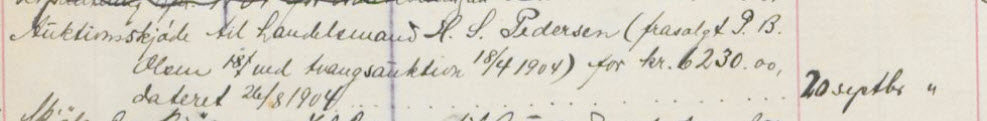 Auktionsskjøde til handelsmand H. S. Pedersen (frasolgt P. B.
Olem ved tvangsauktion 18/4 1904) for kr. 6230.00,
dateret 26/8 1904 . . . . . . . . . . . . 20 septbr "